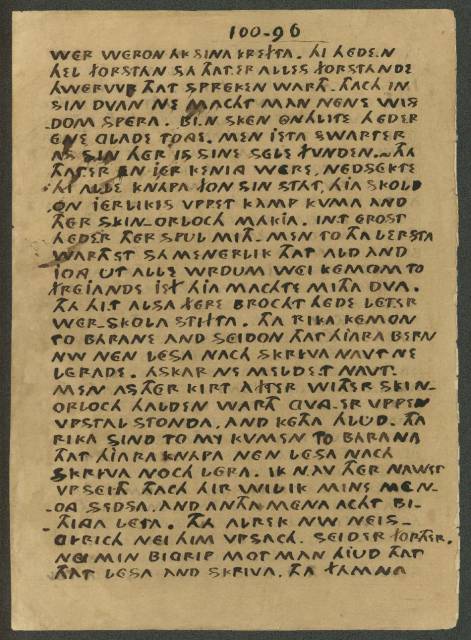 100-96
WÊR WÊRON HJR SINA KREFTA. HI HÊDE.N
HEL FORSTAN SA THATER ALLES FORSTANDE
HWERVVR THAT SPREKEN WARTH. THACH IN
SIN DVAN NE MACHT MAN NENE WIS
DOM SPERA. BI.N SKEN ONHLITE HEDER
ENE GLADE TONGE. MEN JETA SWARTER
AS SIN HER IS SINE SELE FUNDEN. THA
THATER EN JER KENING WERE, NEDSEKTE
HI ALLE KNAPA FON SIN STAT, HJA SKOLD
ON JERLIKES VPPET KAMP KVMA AND
THER SKIN-ORLOCH MAKJA. IN.T EROST
HEDER THER SPUL MITH. MEN TO THA LERSTA
WARTHST SA MENERLIK THAT ALD AND
JONG UT ALLE WRDUM WEI KEMOM TO
FREJANDE JEF HJA MACHTE MITHA DVA.
THA HI.T ALSA FERE BROCHT HEDE LETER
WER-SKOLA STIFTA. THA RIKA KEMON
TO BARANE AND SEIDON THAT HJARA BERN
NW NEN LESA NACH SKRIVA NAVT NE
LERADE. ASKAR NE MELDE.T NAVT.
MEN AS THER KIRT AFTER WITHER SKIN-
ORLOCH HALDEN WARTH GVNG-ER VPPEN
VPSTAL STONDA, AND KETHA HLUD. THA
RIKA SIND TO MY KVMEN TO BARANA
THAT HJARA KNAPA NEN LESA NACH
SKRIVA NOCH LERA. IK NAV THER NAWET
VPSEITH THACH HIR WIL IK MINE MEN-
ONGA SEDSA, AND AN THA MENA ACHT BI-
THINGA LETA. THA ALREK NW NEIS-
GIRICH NEI HIM VPSACH. SEIDER FORTHER.
NEI MIN BIGRIP MOT MAN HJUD THAT
THAT LESA AND SKRIVA. THA FAMNA